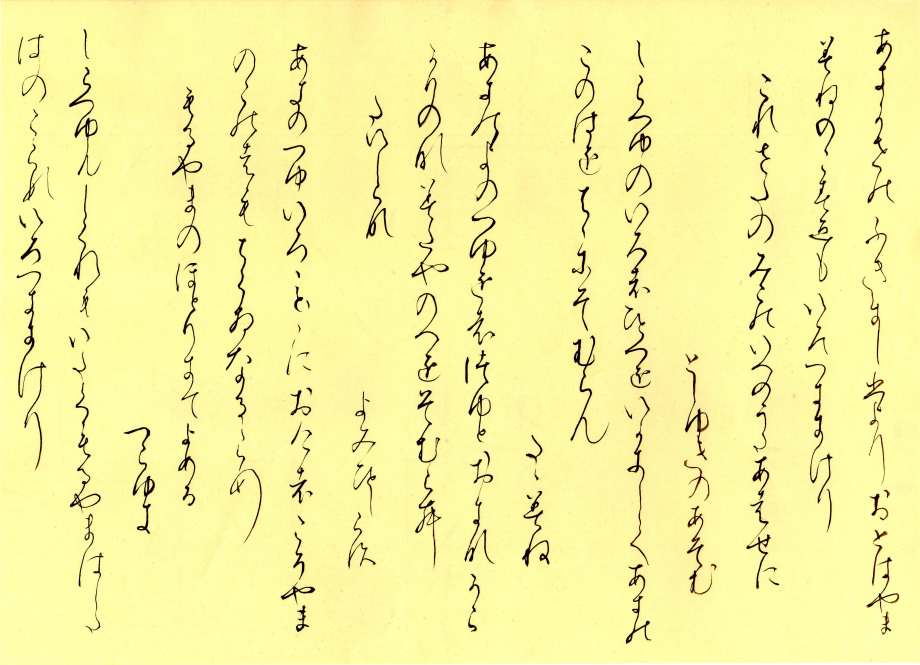 あきかせのふきにしひよりおとはやま
みねのこすゑもいろつきにけり
これさたのみこのいへのうたあはせに
としゆきのあそむ
しらつゆのいろはひとつをいかにしてあきの
このはをちゝにそむらん
たゝみね
あきのよのつゆをはつゆとおきなから
かりのなみたやのへをそむらむ
たいしらす
よみひとしらす
あきのつゆいろことにおけはこそやま
のこのはもちくさなるらめ
もるやまのほとりにてよめる
つらゆき
しらつゆもしくれもいたくもるやまはした
はのこらすいろつきにけり